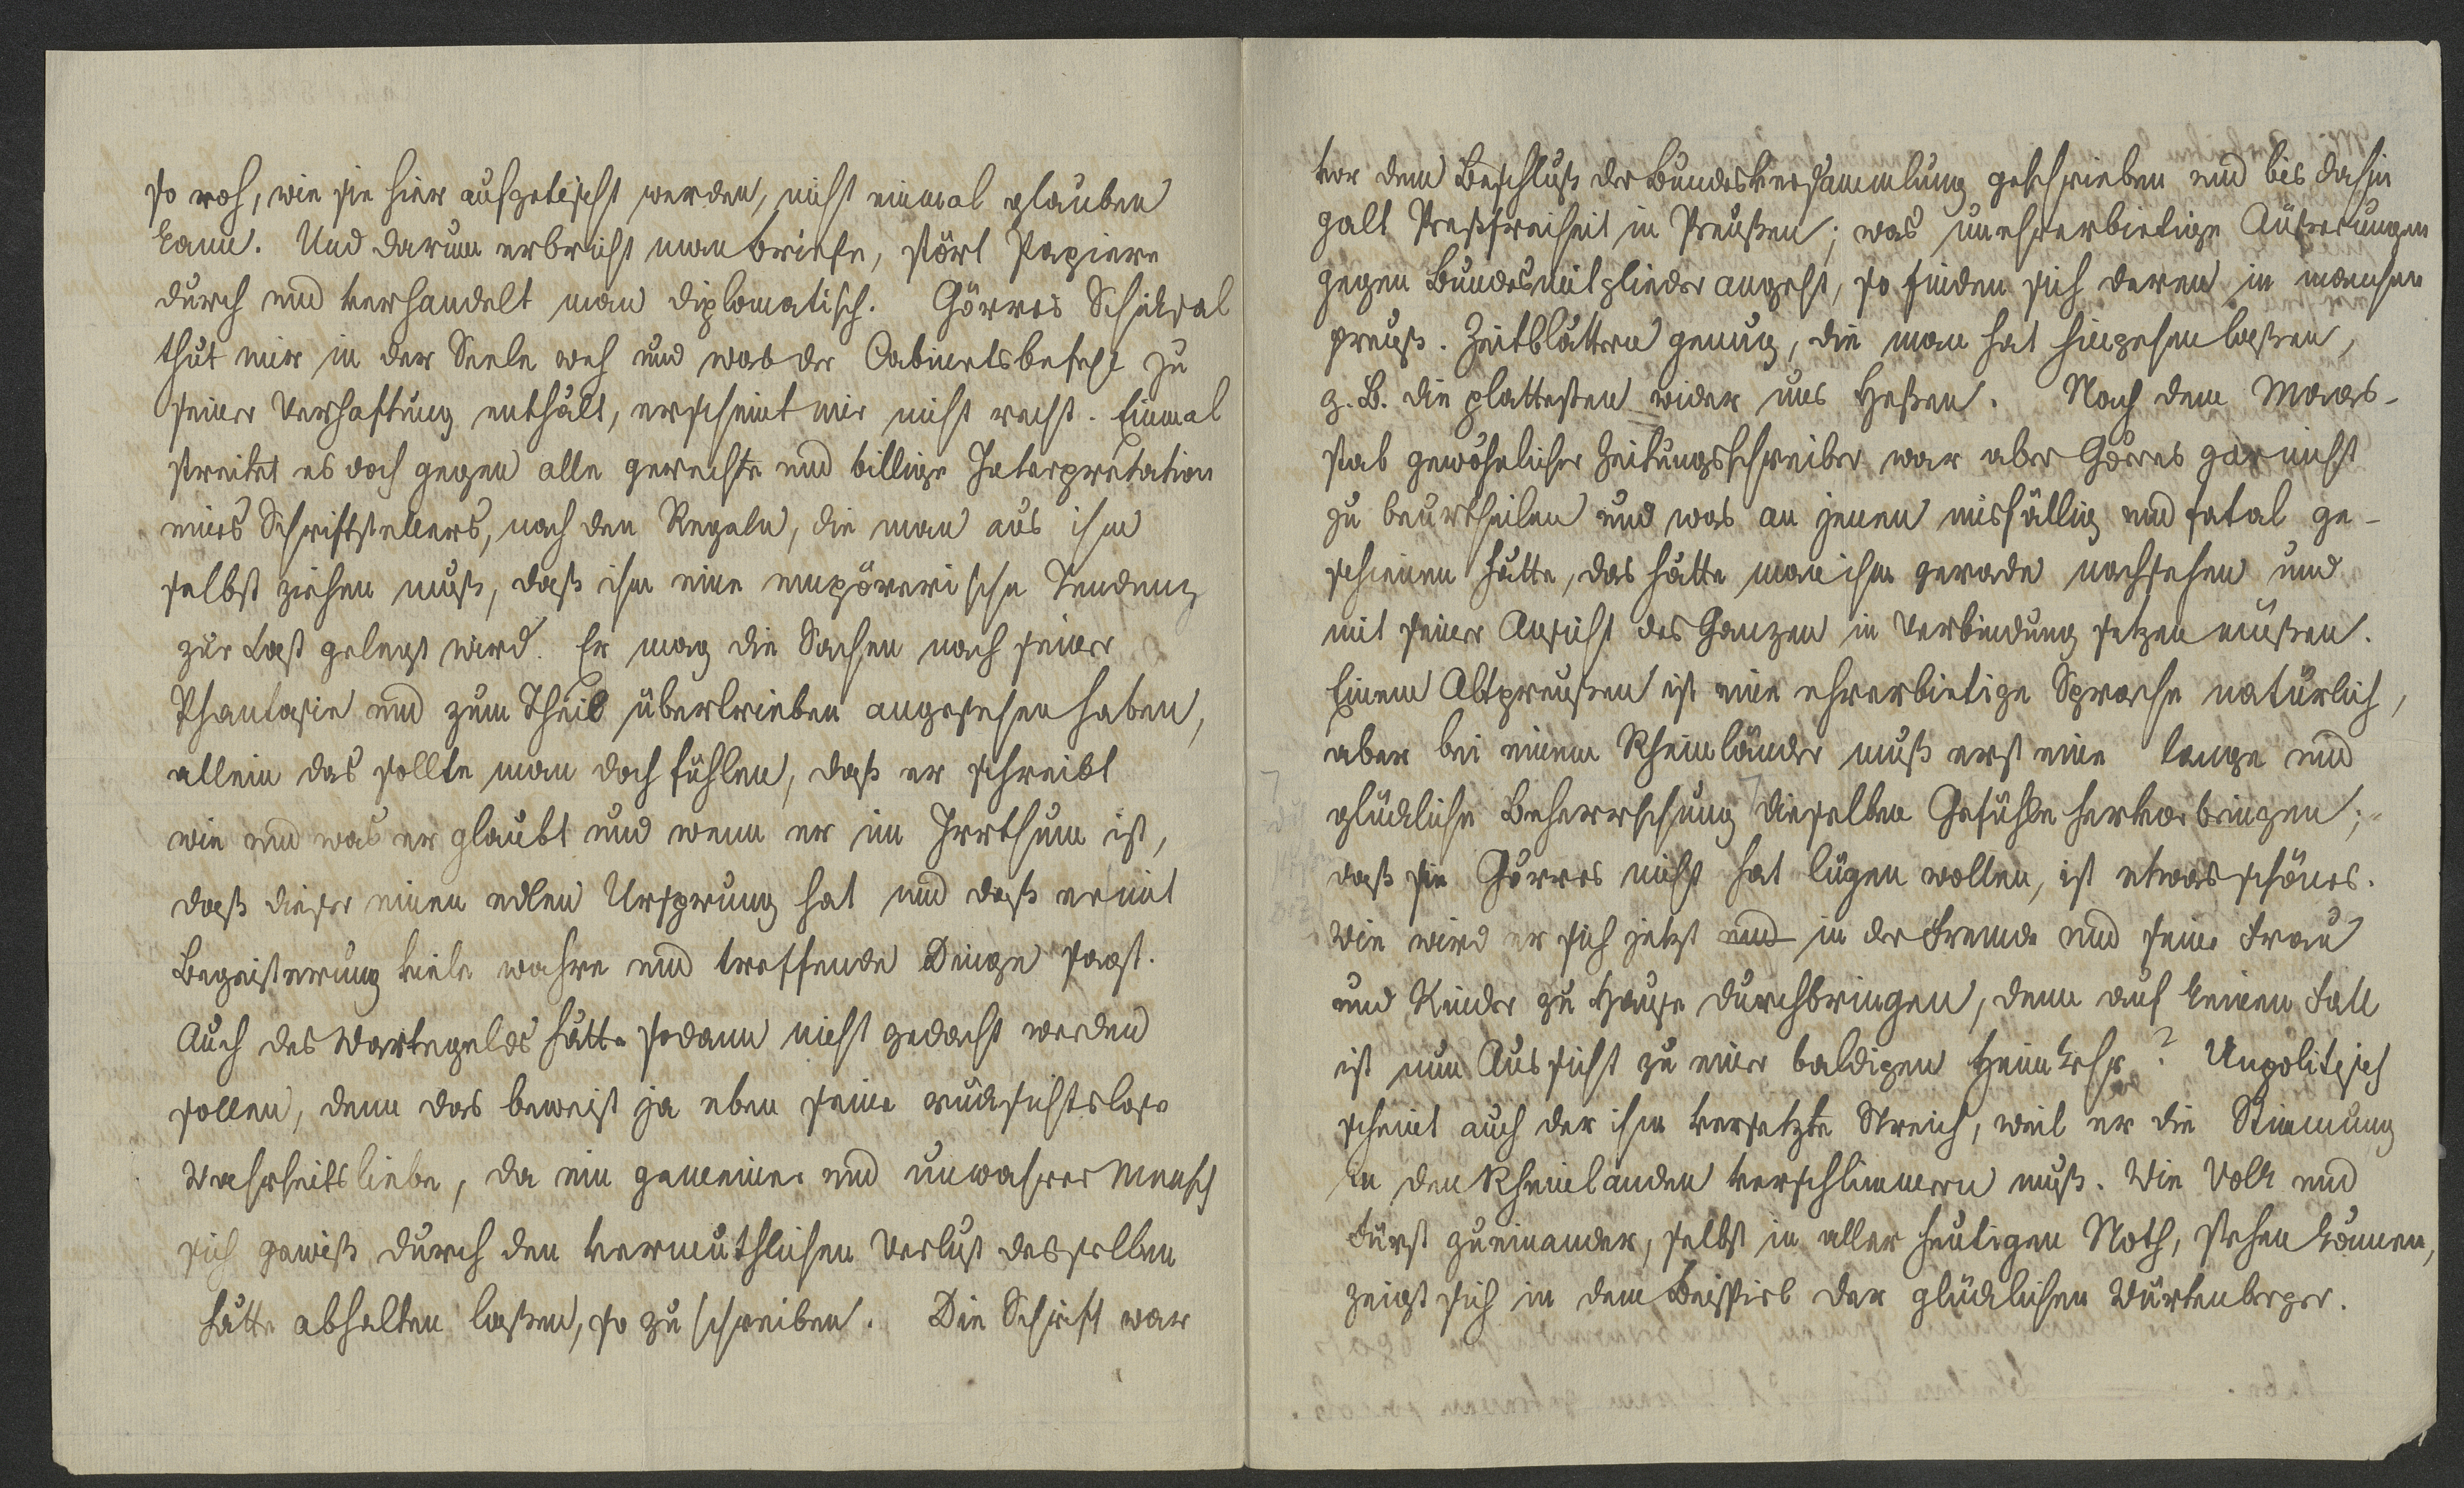 so roh, wie sie hier aufgetischt werden, nicht einmal glauben
kann. Und darum erbricht man briefe, stört Papiere
durch und verhandelt man diplomatisch. Görres Schicksal
thut mir in der Seele weh und was der Cabinetsbefehl zu
seiner Verhaftung enthält, erscheint mir nicht recht. Einmal
streitet es doch gegen alle gerechte und billige Interpretation
eines Schriftstellers, nach den Regeln, die man aus ihm
selbst ziehen muß, daß ihm eine empörerische Tendenz
zur Last gelegt wird. Er mag die Sachen nach seiner
Phantasie und zum Theil übertrieben angesehen haben,
allein das sollte man doch fühlen, daß er schreibt
wie und was er glaubt und wenn er im Irrthum ist,
daß dieser einen edlen Ursprung hat und daß er mit
Begeisterung viele wahre und treffende Dinge sagt.
Auch des Wartegelds hätte sodann nicht gedacht werden
sollen, denn das beweist ja eben seine rücksichtslose
Wahrheitsliebe, da ein gemeiner und unwahrer Mensch
sich gewiß durch den vermuthlichen Verlust desselben
hätte abhalten laßen, so zu schreiben. Die Schrift war
vor dem Beschluß der Bundesversammlung geschrieben und bis dahin
galt Preßfreiheit in Preußen; was unehrerbietige Äußerungen
gegen Bundesmitglieder angeht, so finden sich deren in manchen
preuß. Zeitblättern genug, die man hat hingehen laßen,
z. B. die plattesten wider uns Heßen. Nach dem Maas-
stab gewöhnlicher Zeitungsschreiber war aber Görres gar nicht
zu beurtheilen und was an jenen misfällig und fatal ge-
schienen hätte, das hätte man ihm gerade nachsehen und
mit seiner Ansicht des Ganzen in Verbindung setzen müßen.
Einem Altpreußen ist eine ehrerbietige Sprache natürlich,
aber bei einem Rheinländer muß erst eine lange und
glückliche Beherrschung dieselben Gefühle hervorbringen;
daß sie Görres nicht hat lügen wollen, ist etwas schönes.
Wie wird er sich jetzt und in der Fremde und seine Frau
und Kinder zu Hause durchbringen, denn auf keinen Fall
ist nun Aussicht zu einer baldigen Heimkehr? Unpolitisch
scheint auch der ihm versetzte Streich, weil er die Stimmung
in den Rheinlanden verschlimmern muß. Wie Volk und
Fürst zueinander, selbst in aller heutigen Noth, stehen können,
zeigt sich in dem Beispiel der glücklichen Würtenberger.